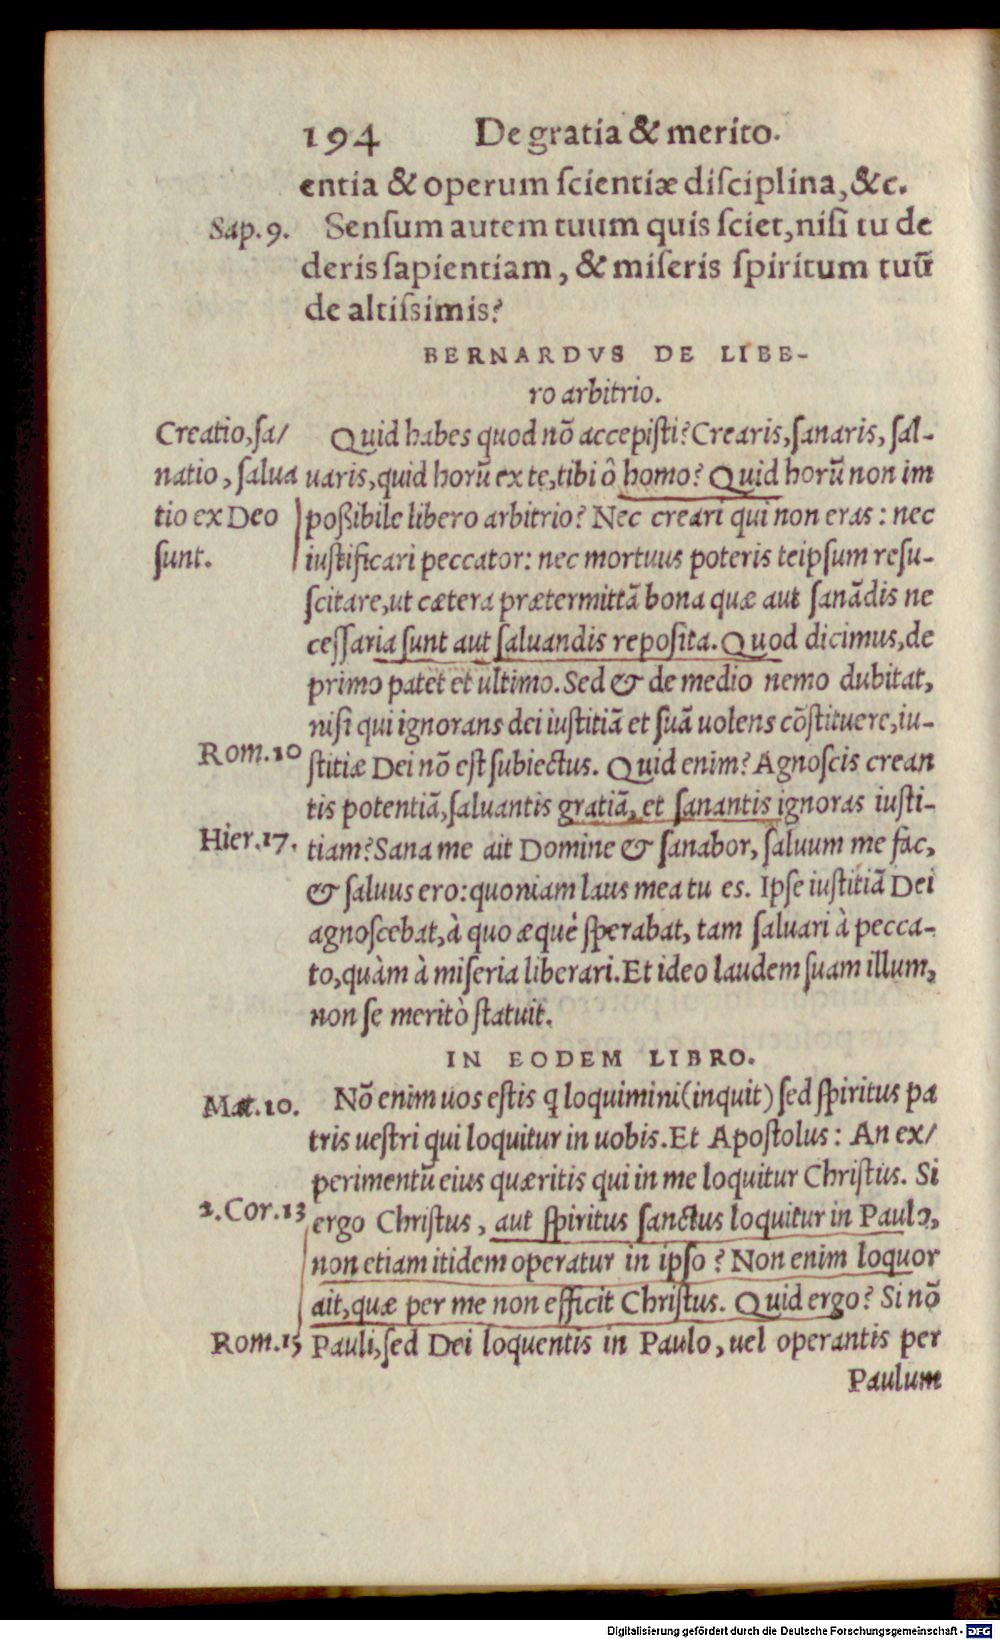 194 De gratia & merito.
entia & operum scientiæ disciplina, &c.
Sap. 9. Sensum autem tuum quis sciet, nisi tu de
deris sapientiam, & miseris spiritum tuũ
de altissimis?
BERNARDVS DE LIBE-
ro arbitrio.
Creatio, sa/
natio, salua
tio ex Deo
sunt.
Quid habes quod nõ accepisti? Crearis, sanaris, sal-
uaris, quid horũ ex te, tibi ô homo? Quid horũ non im
poßibile libero arbitrio? Nec creari qui non eras: nec
iustificari peccator: nec mortuus poteris teipsum resu-
scitare, ut cætera prætermittã bona quæ aut sanãdis ne
cessaria sunt aut saluandis reposita. Quod dicimus, de
primo patet et ultimo. Sed & de medio nemo dubitat,
nisi qui ignorans dei iustitiã et suã uolens cõstituere, iu-
Rom. 10 stitiæ Dei nõ est subiectus. Quid enim? Agnoscis crean
tis potentiã, saluantis gratiã, et sanantis ignoras iusti-
Hier. 17. tiam? Sana me ait Domine & sanabor, saluum me fac,
& saluus ero: quoniam laus mea tu es. Ipse iustitiã Dei
agnoscebat, à quo æquè sperabat, tam saluari à pecca-
to, quàm à miseria liberari. Et ideo laudem suam illum,
non se meritò statuit.
IN EODEM LIBRO.
Mat. 10. Nõ enim uos estis q loquimini (inquit) sed spiritus pa
tris uestri qui loquitur in uobis. Et Apostolus: An ex/
perimentũ eius quæritis qui in me loquitur Christus. Si
2. Cor. 13 ergo Christus, aut spiritus sanctus loquitur in Paulo,
non etiam itidem operatur in ipso? Non enim loquor
ait, quæ per me non efficit Christus. Quid ergo? Si nõ
Rom. 15 Pauli, sed Dei loquentis in Paulo, uel operantis per
Paulum
Digitalisierung gefördert durch die Deutsche Forschungsgemeinschaft - DFG